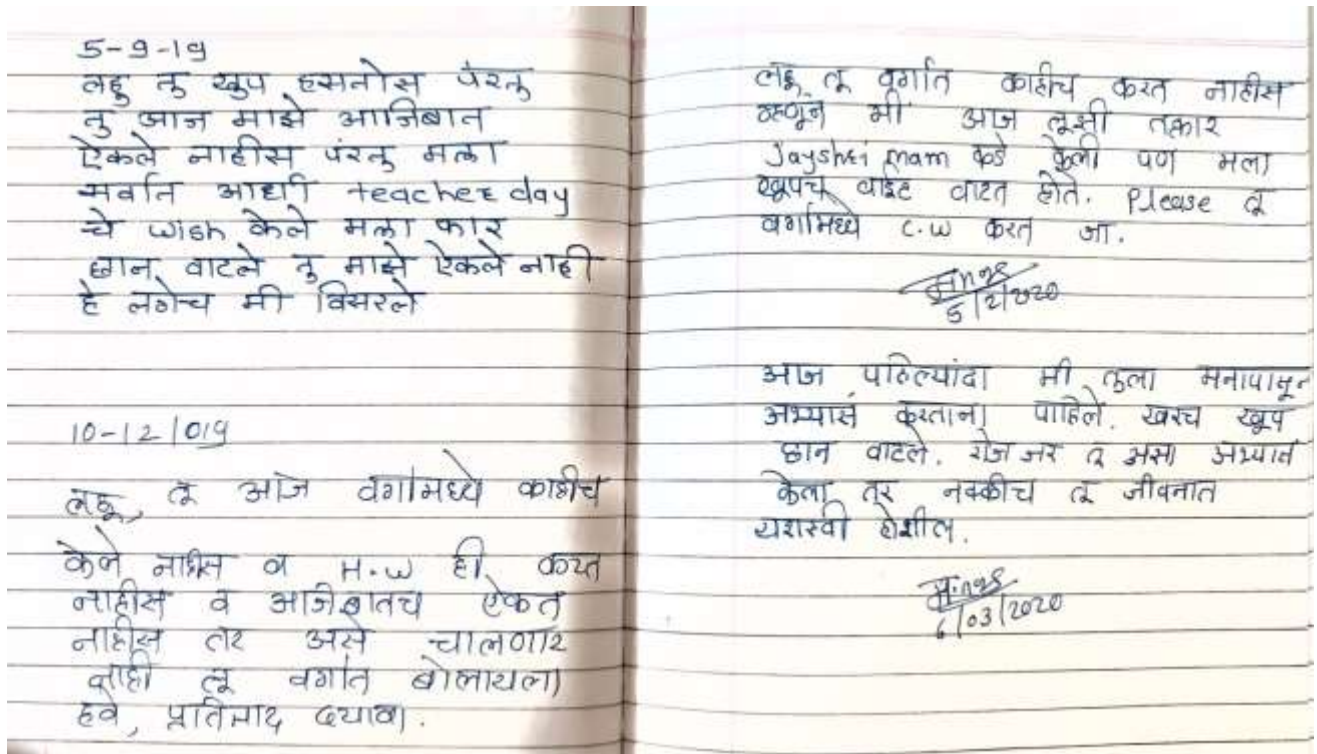 5-9-19
लहु तु खुप हसतोस पंरतु
तु आज माझे आजिबात
ऐकले नाहीस पंरतु मला
सर्वात आधी teacher day
चे wish केले मला फार
छान वाटले तु माझे ऐकले नाही
हे लगेच मी विसरले
10-12/019
लहू, तू आज वर्गामध्ये काहीच
केले नाहीस व H.W ही करत
नाहीस व आजिबातच ऐकत
नाहीस तर असे चालणार
नाही तू वर्गात बोलायला
हवे, प्रतिसाद द्यावा.
लहू तू वर्गात काहीच करत नाहीस
म्हणून मी आज तूझी तक्रार
Jayshri mam कडे केली पण मला
खूपच वाईट वाटत होते. Please तू
वर्गामध्ये C.W करत जा.
5/2/2020
आज पहिल्यांदा मी तुला मनापासून
अभ्यास करताना पाहिले. खरच खूप
छान वाटले. रोज जर तू असा अभ्यास
केला तर नक्कीच तू जीवनात
यशस्वी होशील.
6/03/2020